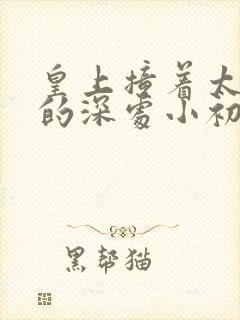 皇上撞着太
的深处小初
黑帮猫